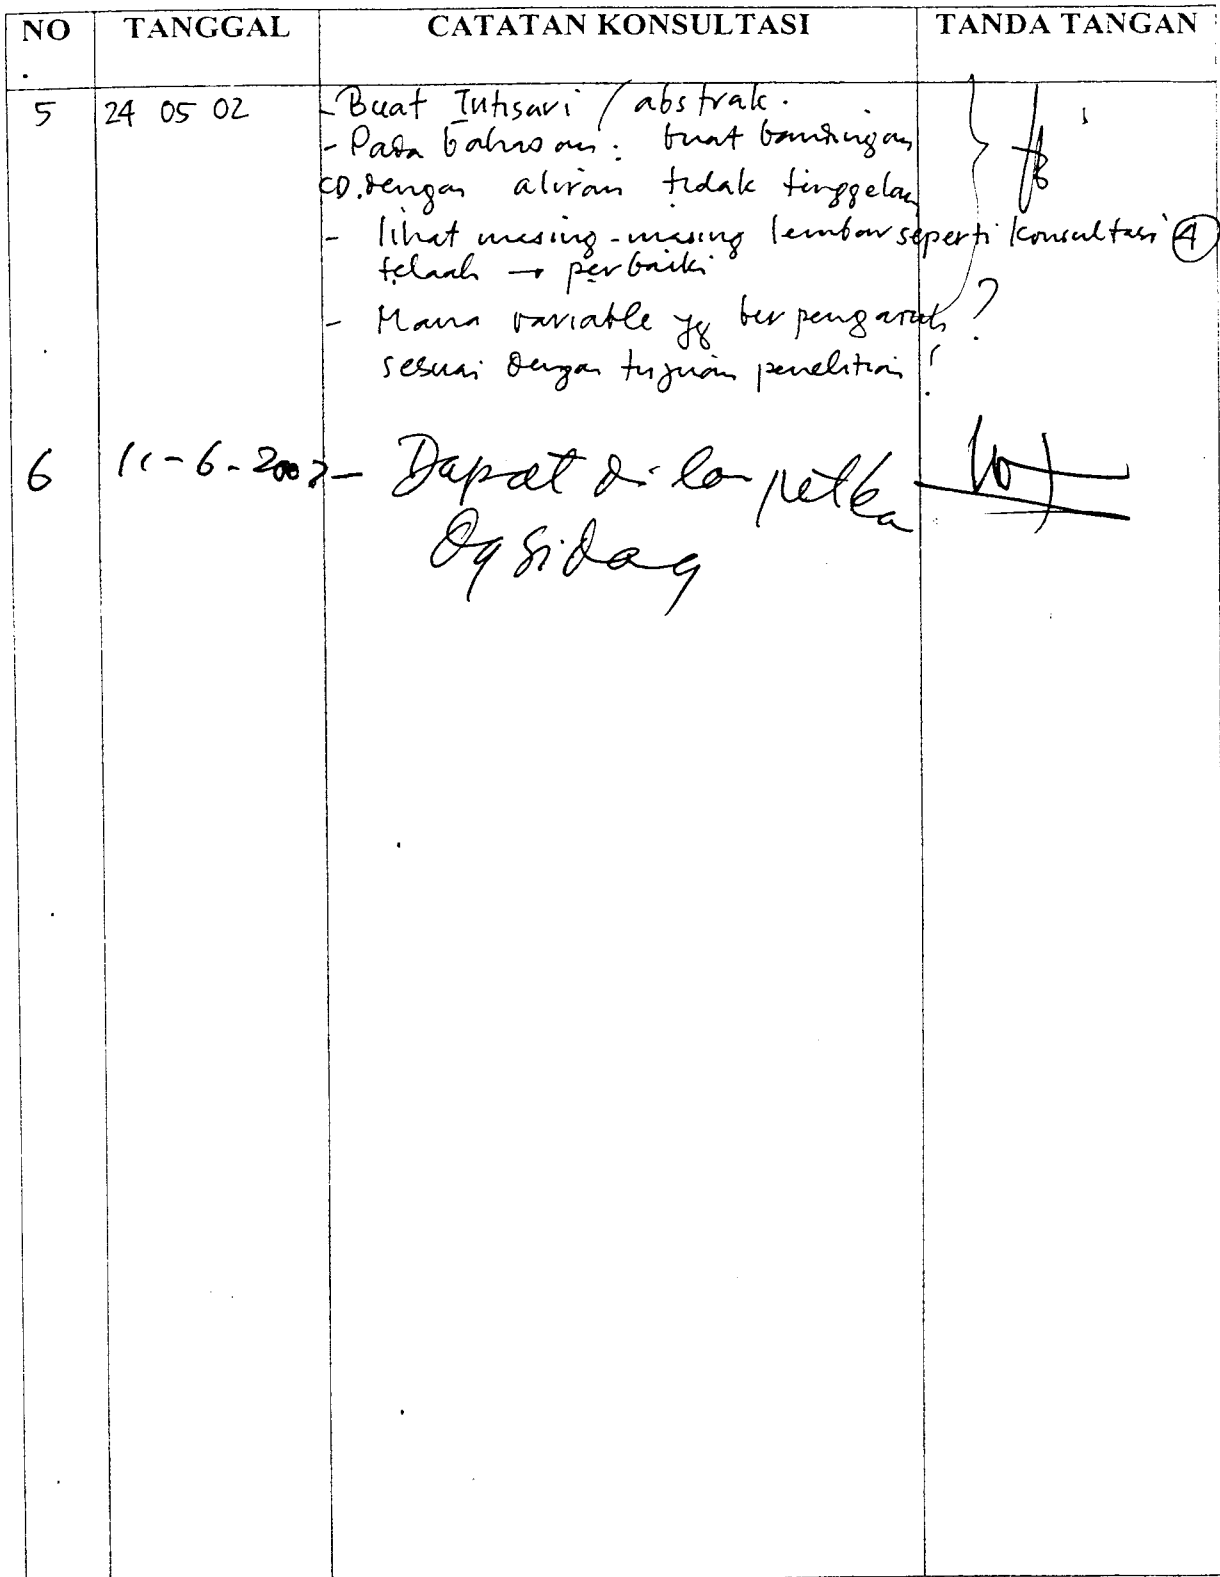 NO. TANGGAL CATATAN KONSULTASI TANDA TANGAN
5 24 05 02 - Buat Intisari / abstrak.
- Pada bahasan : buat bandingan
CD. dengan aliran tidak tinggelam
- lihat masing-masing lembar seperti konsultasi 4
telaah → perbaiki
- Mana variable yg berpengaruh ?
sesuai dengan tujuan penelitian !
6 11-6-2002 - Dapat di lanjutka
dg sidag